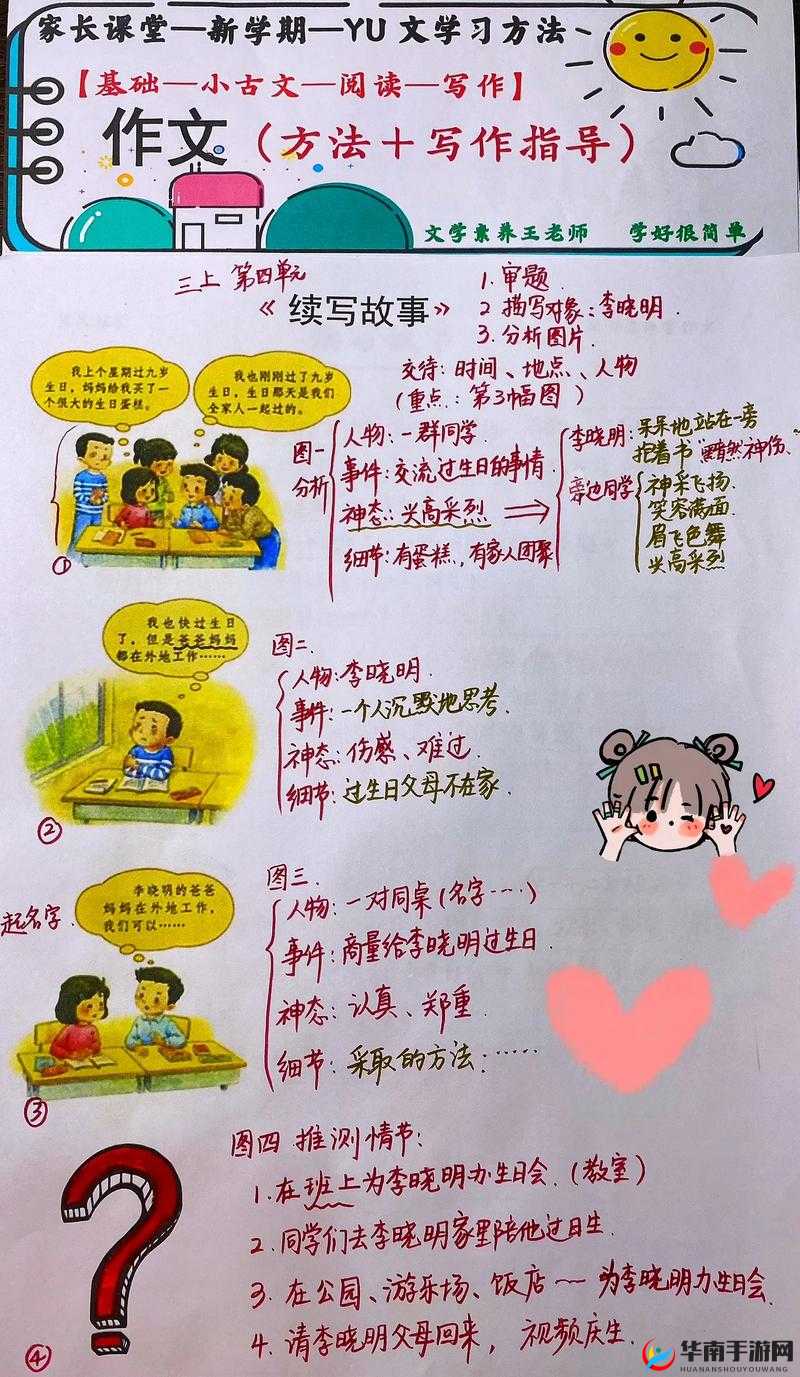 家长课堂—新学期—YU 文学习方法
【基础—小古文—阅读—写作】
作文（方法＋写作指导）
文学素养王老师 学好很简单
三上 第四单元
《续写故事》
1.审题.
2 描写对象:李晓明.
3.分析图片.
交待:时间、地点、人物
(重点:第3幅图)
我上个星期过九岁
生日，妈妈给我买了一
个很大的生日蛋糕。
我也刚刚过了九岁
生日，生日那天是我们
全家人一起过的。
①
图一
分析
人物:一群同学.
事件:交流过生日的事情.
神态:兴高采烈
细节:有蛋糕,有家人团聚
李晓明:呆呆地站在一旁
抱着书"黯然神伤、
旁边同学
神采飞扬.
笑容满面.
眉飞色舞
兴高采烈
我也快过生日
了，但是爸爸妈妈
都在外地工作……
②
图二.
人物:李晓明.
事件:一个人沉默地思考.
神态:伤感、难过.
细节:过生日父母不在家.
起名字.
李晓明的爸爸
妈妈在外地工作，
我们可以……
③
图三.
人物:一对同桌(名字····)
事件:商量给李晓明过生日.
神态:认真、郑重.
细节:采取的方法:……
④
图四 推测情节:
1.在班上为李晓明办生日会.(教室)
2.同学们去李晓明家里陪他过日生.
3.在公园、游乐场、饭店~为李晓明办生日会.
4.请李晓明父母回来,视频庆生.
华南手游网
HUANANSHOUYOUWANG